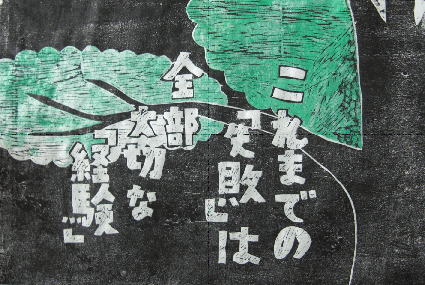 これまでの
「失敗」は
全部
大切な
「経験」